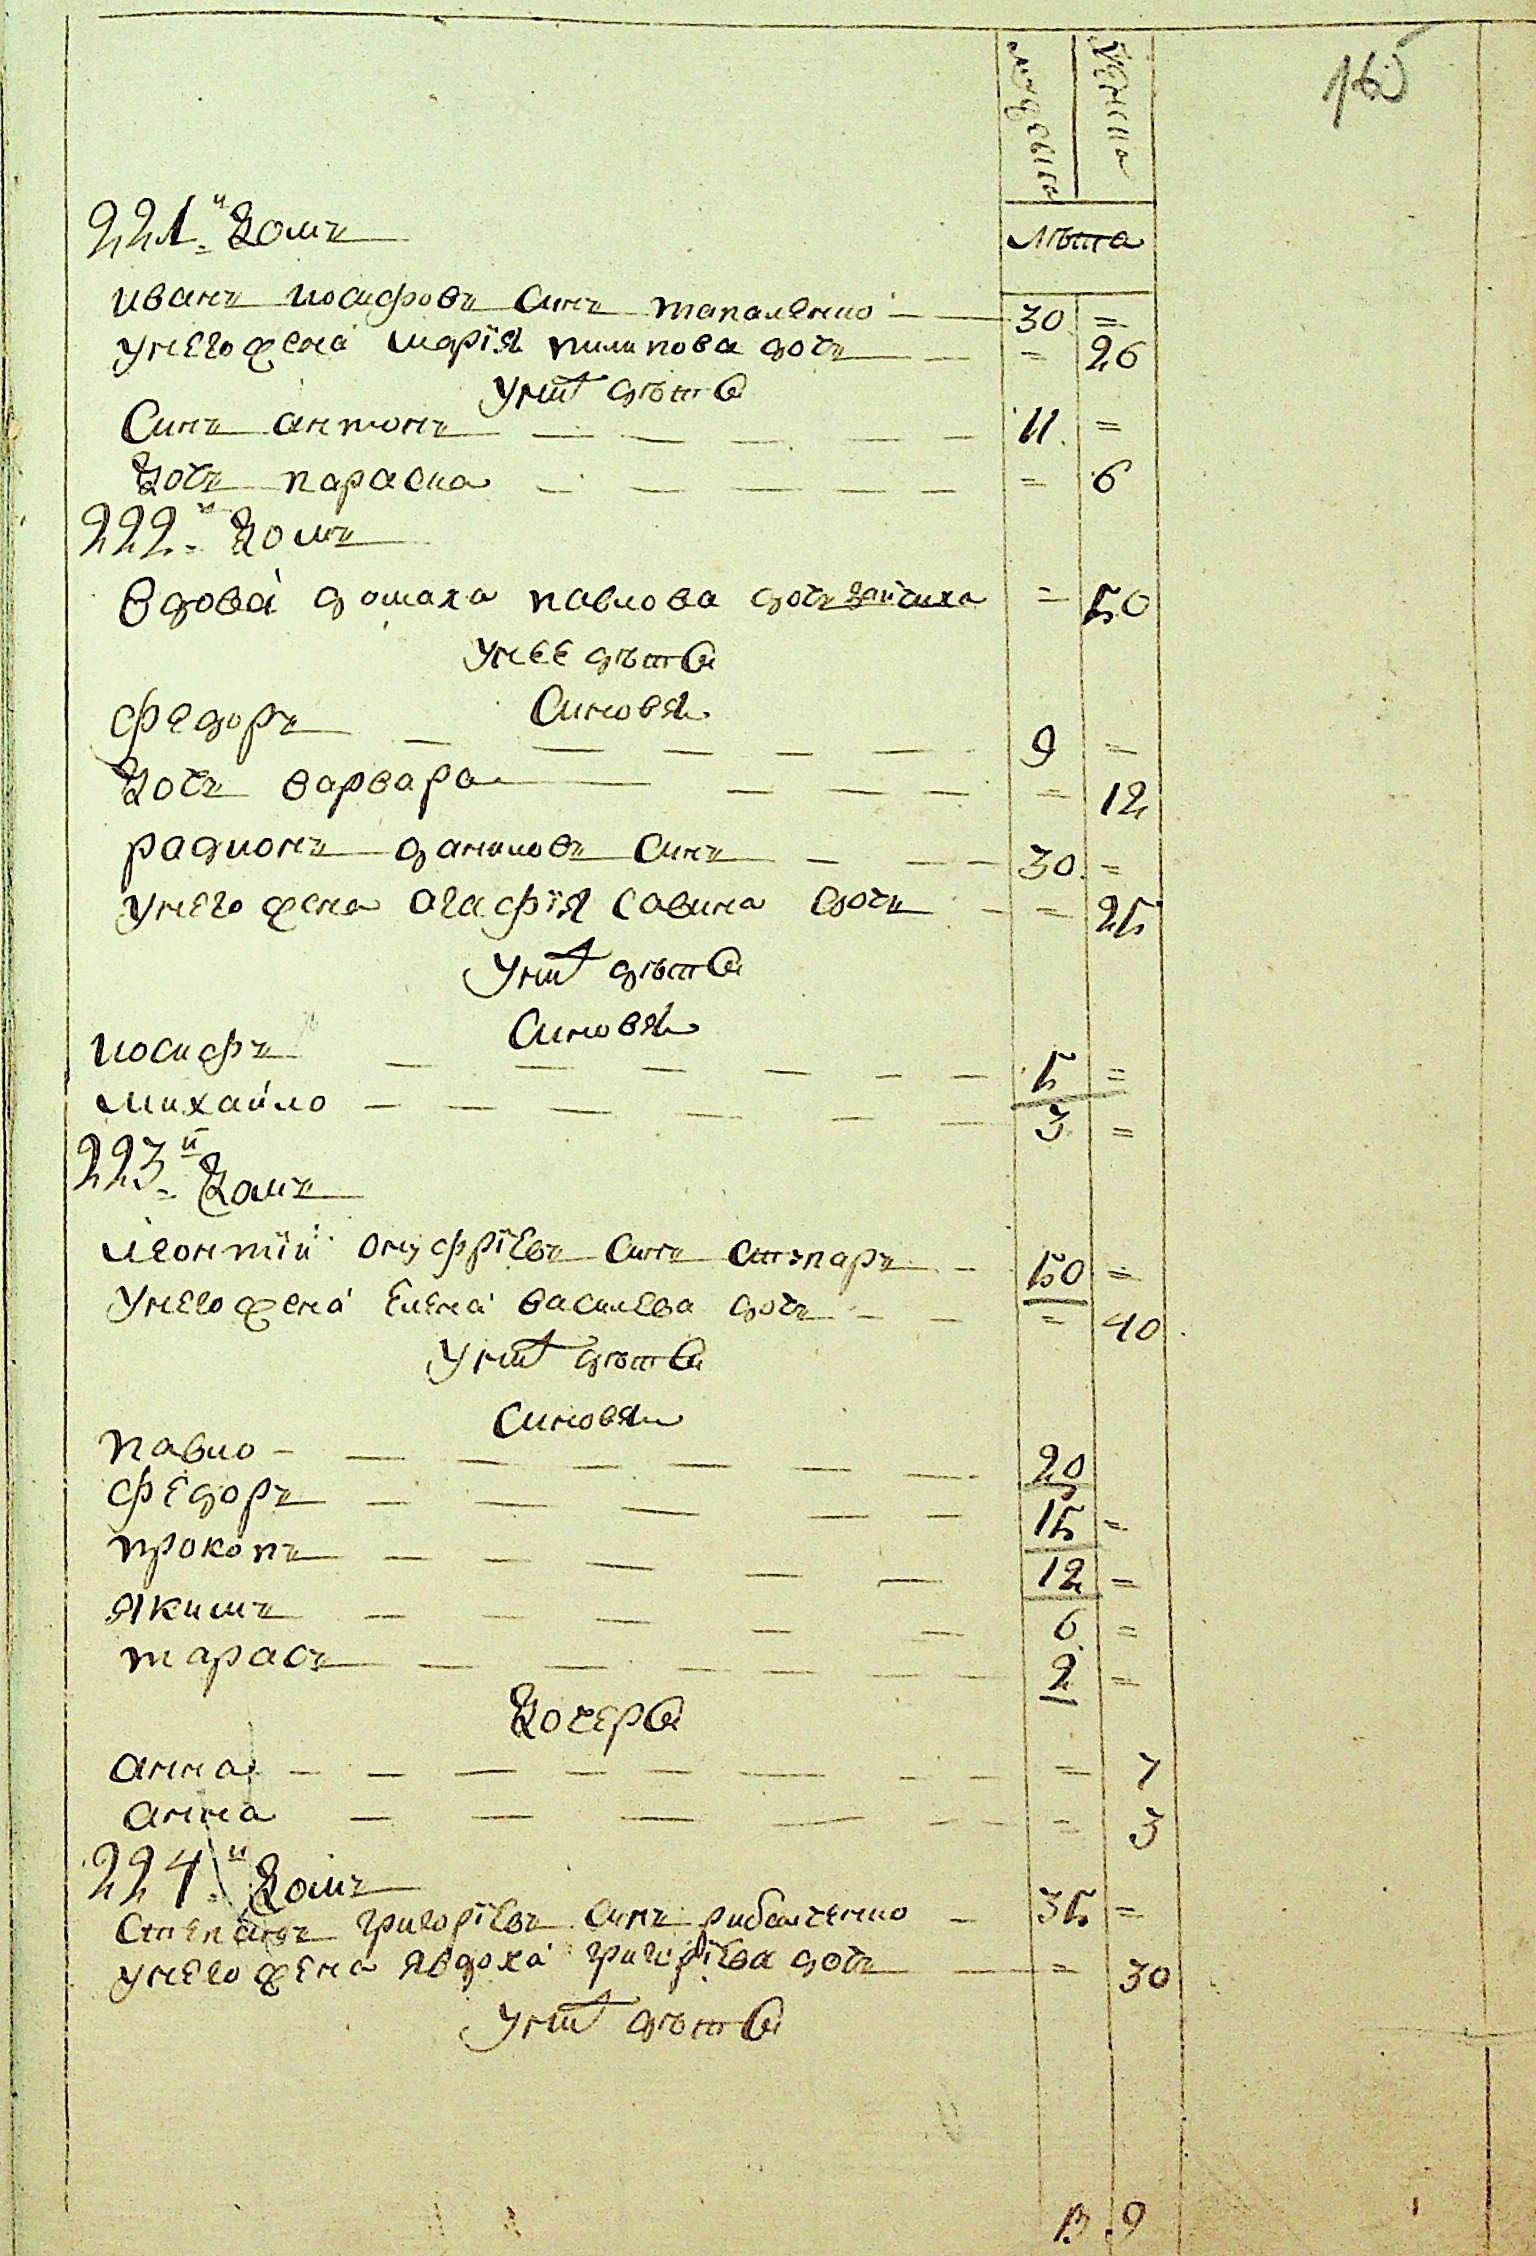 165
мужеска
женска
лѣта
221й Домъ
иванъ иосифовъ синъ тапаленко 30 =
унего жена марїя пилипова дочъ = 26
унихъ дѣти
Синъ антонъ 11 =
Дочъ параска = 6
222й Домъ
Вдова домаха павлова дочъ зайчиха = 50
унее дѣти
Синовя
федоръ 9 =
Дочъ варвара = 12
радионъ даниловъ синъ 30 =
унего жена агафїя савина дочъ = 25
унихъ дѣти
Синовя
иосифъ 5 =
михайло 3 =
223й Домъ
леонтїй онуфрїевъ синъ столяръ 50 =
унего жена елена василева дочъ = 40
унихъ дѣти
Синовя
павло 20
федоръ 15 =
прокопъ 12 =
якимъ 6 =
тарасъ 2 =
Дочери
анна = 7
анна = 3
224й Домъ
Степанъ григорїевъ синъ рибалченко 35 =
унего жена явдоха григорїева дочъ = 30
унихъ дѣти
13 9